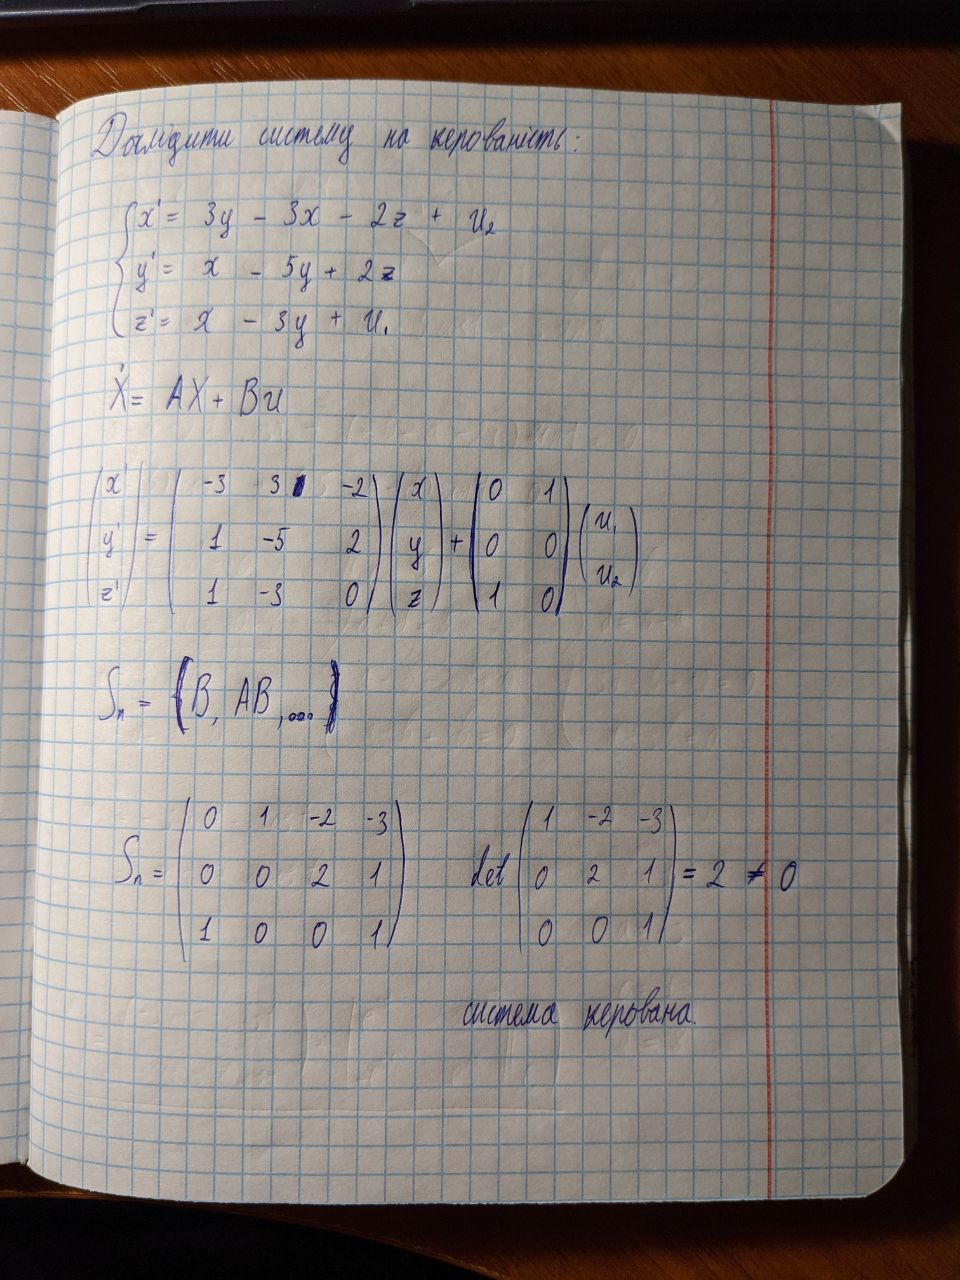 Дослідити систему на керованість:
x' = 3y - 3x - 2z + u₂
y' = x - 5y + 2z
z' = x - 3y + u₁
Ẋ = AX + Bu
(x' y' z') = (-3 3 -2; 1 -5 2; 1 -3 0) (x y z) + (0 1; 0 0; 1 0) (u₁ u₂)
Sₙ = {B, AB, ...}
Sₙ = (0 1 -2 -3; 0 0 2 1; 1 0 0 1) det (1 -2 -3; 0 2 1; 0 0 1) = 2 ≠ 0
система керована.